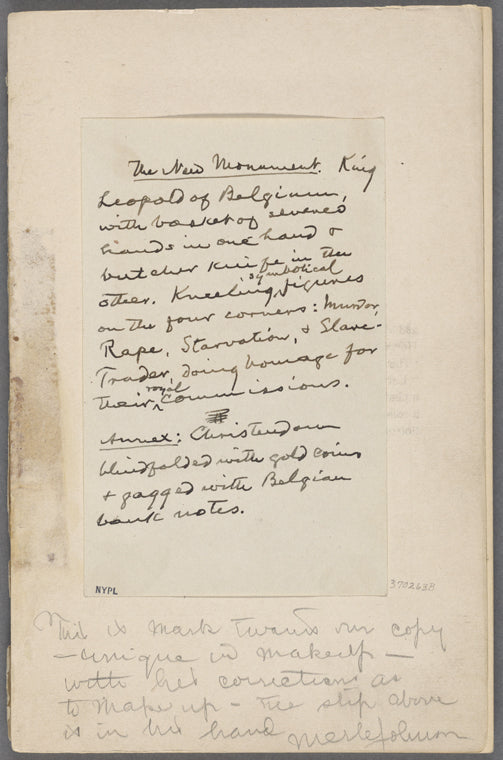 The New Monument. King
Leopold of Belgium,
with basket of severed
hands in one hand &
butcher knife in the
other. Kneeling symbolical figures
on the four corners: Murder,
Rape, Starvation, & Slave-
Trader, doing homage for
their royal commissions.
Annex: Christendom
blindfolded with gold coins
& gagged with Belgian
bank notes.
NYPL
3702638
This is Mark Twain's own copy
— unique in makeup —
with his corrections as
to make up — The slip above
is in his hand Merle Johnson